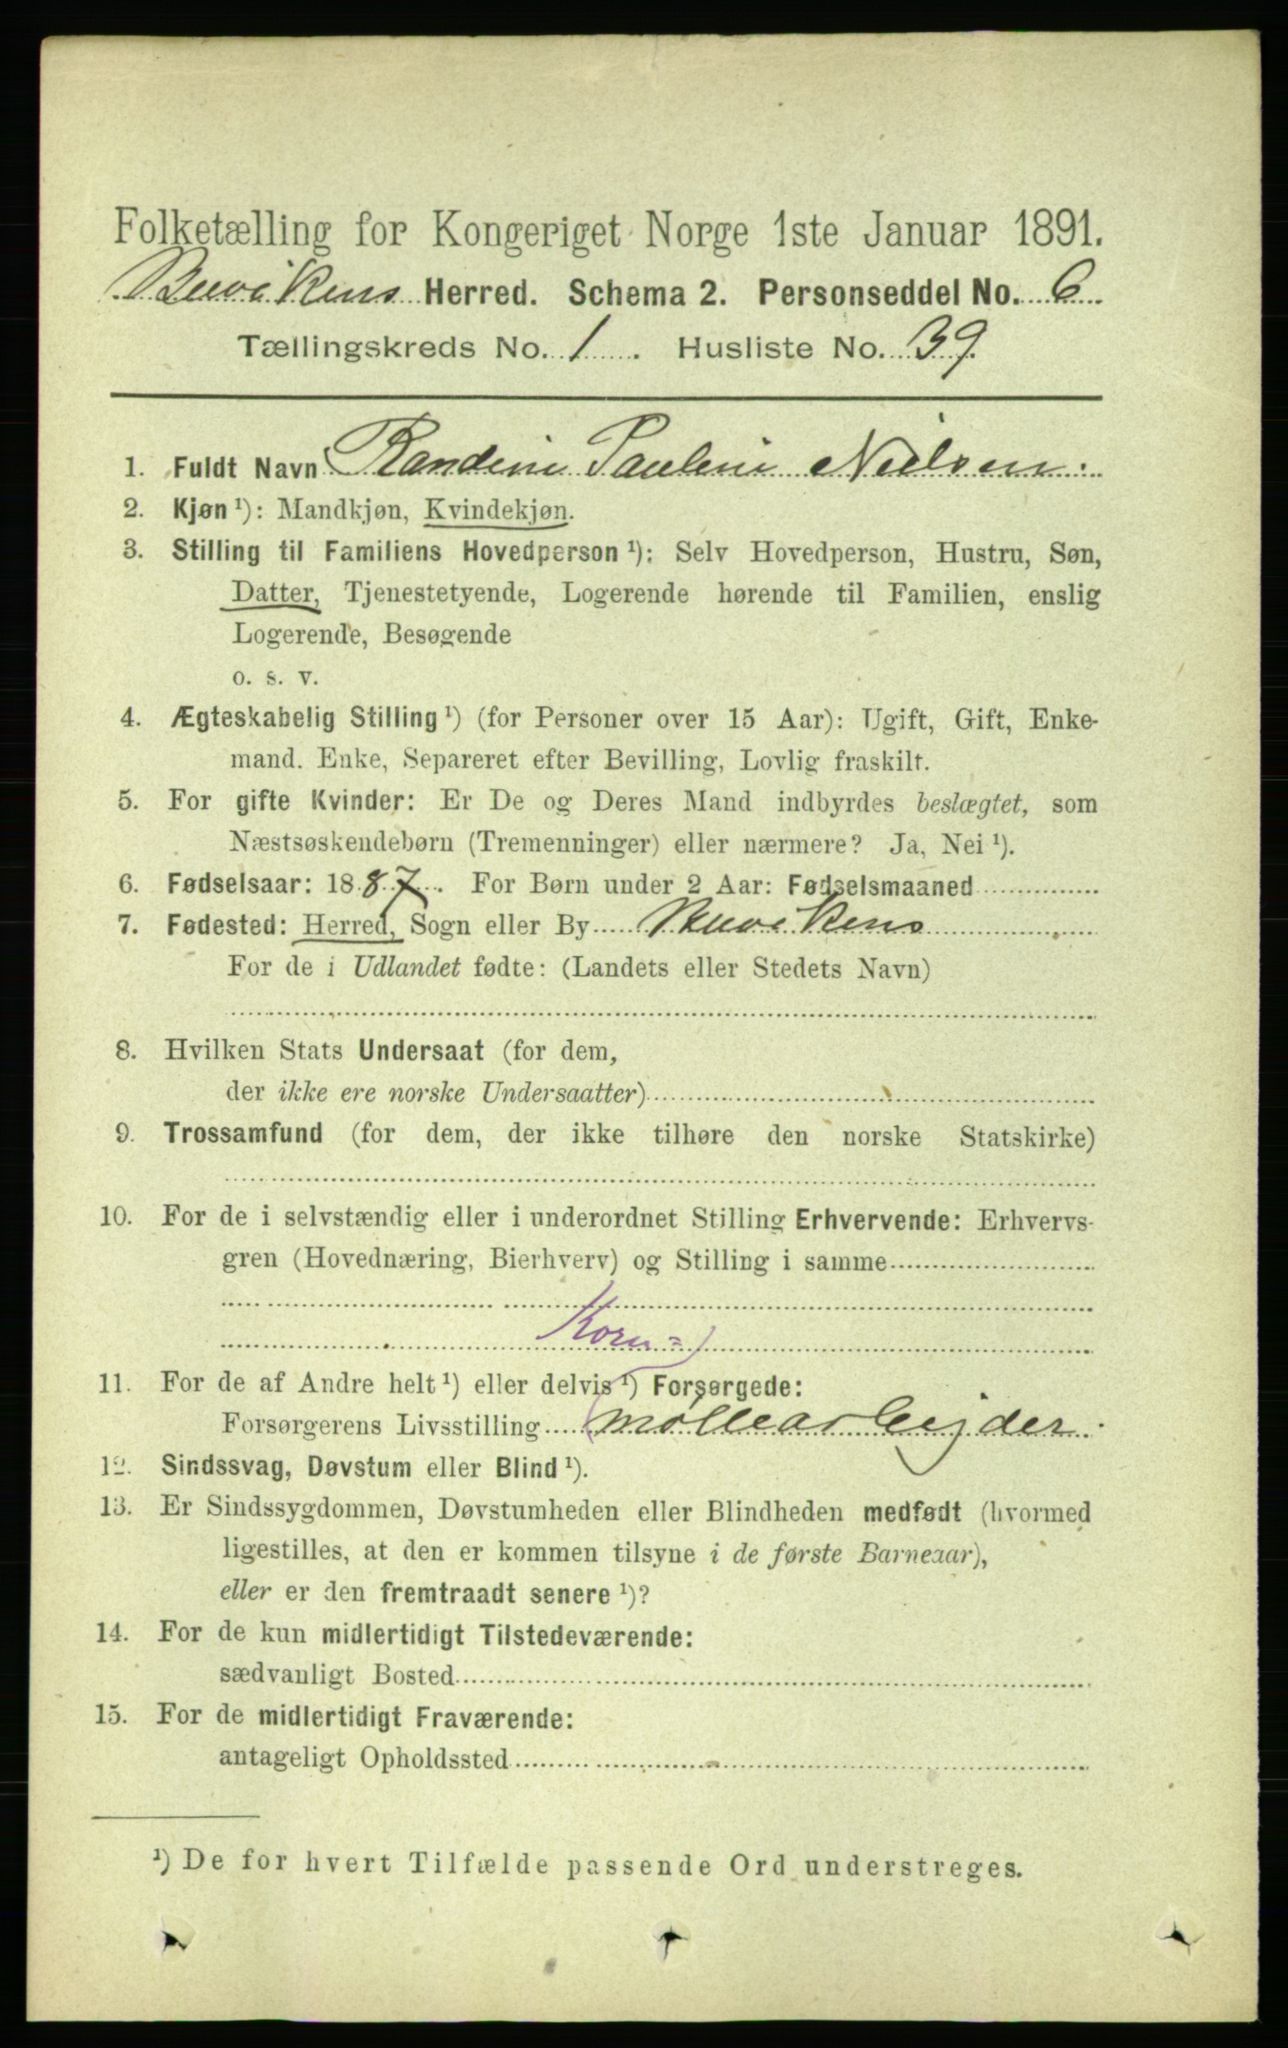 Folketælling for Kongeriget Norge 1ste Januar 1891.
Buvikens Herred. Schema 2. Personseddel No. 6
Tællingskreds No. 1. Husliste No. 39.
1. Fuldt Navn Randine Pauline Nielsen.
2. Kjøn ¹): Mandkjøn, Kvindekjøn.
3. Stilling til Familiens Hovedperson ¹): Selv Hovedperson, Hustru, Søn,
Datter, Tjenestetyende, Logerende hørende til Familien, enslig
Logerende, Besøgende
o. s. v.
4. Ægteskabelig Stilling ¹) (for Personer over 15 Aar): Ugift, Gift, Enke-
mand. Enke, Separeret efter Bevilling, Lovlig fraskilt.
5. For gifte Kvinder: Er De og Deres Mand indbyrdes beslægtet, som
Næstsøskendebørn (Tremenninger) eller nærmere? Ja, Nei ¹).
6. Fødselsaar: 1887. For Børn under 2 Aar: Fødselsmaaned
7. Fødested: Herred, Sogn eller By Buvikens
For de i Udlandet fødte: (Landets eller Stedets Navn)
8. Hvilken Stats Undersaat (for dem,
der ikke ere norske Undersaatter)
9. Trossamfund (for dem, der ikke tilhøre den norske Statskirke)
10. For de i selvstændig eller i underordnet Stilling Erhvervende: Erhvervs-
gren (Hovednæring, Bierhverv) og Stilling i samme
Korn=
11. For de af Andre helt ¹) eller delvis ¹) Forsørgede:
Forsørgerens Livsstilling møllearbeijder.
12. Sindssvag, Døvstum eller Blind ¹).
13. Er Sindssygdommen, Døvstumheden eller Blindheden medfødt (hvormed
ligestilles, at den er kommen tilsyne i de første Barneaar),
eller er den fremtraadt senere ¹)?
14. For de kun midlertidigt Tilstedeværende:
sædvanligt Bosted
15. For de midlertidigt Fraværende:
antageligt Opholdssted
¹) De for hvert Tilfælde passende Ord understreges.